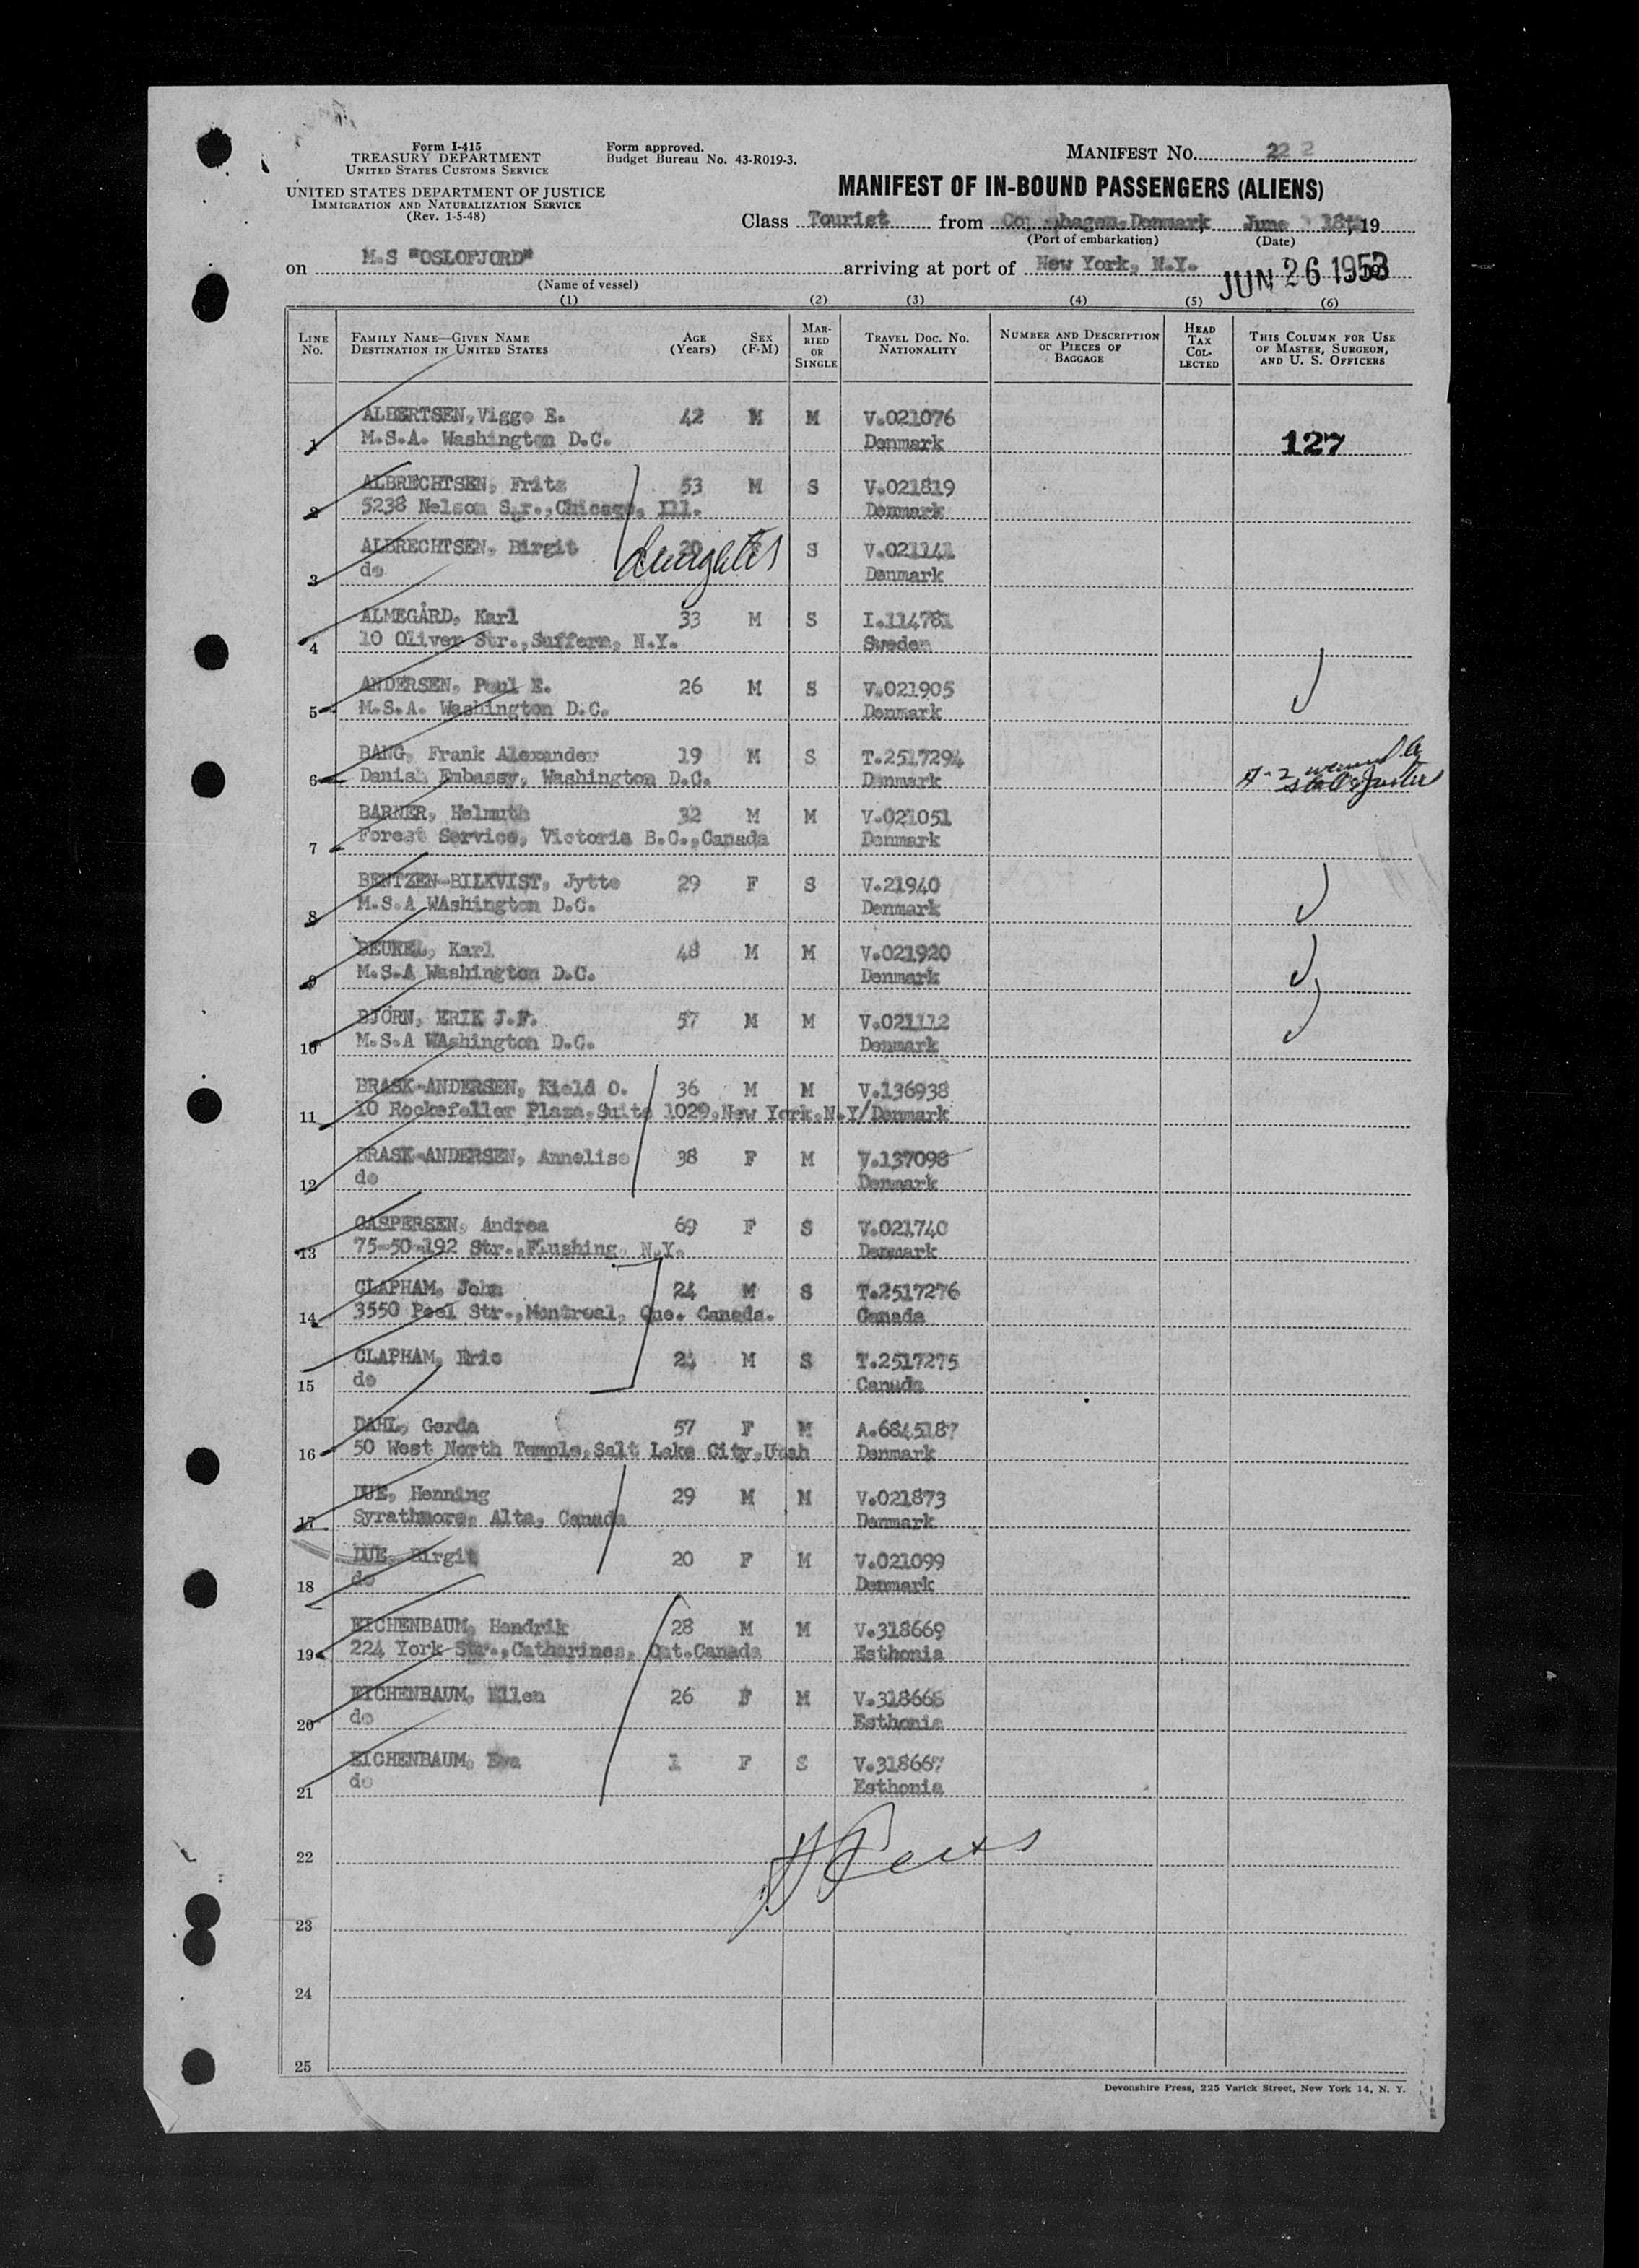 Form I-415
TREASURY DEPARTMENT
UNITED STATES CUSTOMS SERVICE
UNITED STATES DEPARTMENT OF JUSTICE
IMMIGRATION AND NATURALIZATION SERVICE
(Rev. 1-5-48)
Form approved.
Budget Bureau No. 43-R019-3.
MANIFEST No. 22 2
MANIFEST OF IN-BOUND PASSENGERS (ALIENS)
Class Tourist from Copenhagen, Denmark, June 18th, 19
(Port of embarkation) (Date)
on M.S "OSLOFJORD" arriving at port of New York, N.Y. JUN 26 1953
(Name of vessel)
(1) (2) (3) (4) (5) (6)
LINE No. FAMILY NAME—GIVEN NAME DESTINATION IN UNITED STATES AGE (Years) SEX (F-M) MARRIED OR SINGLE TRAVEL DOC. No. NATIONALITY NUMBER AND DESCRIPTION OF PIECES OF BAGGAGE HEAD TAX COLLECTED THIS COLUMN FOR USE OF MASTER, SURGEON, AND U. S. OFFICERS
ALBERTSEN, Viggo E. 42 M M V.021076
1 M.S.A. Washington D.C. Denmark 127
ALBRECHTSEN, Fritz 53 M S V.021819
2 5238 Nelson Sr., Chicago, Ill. Denmark
ALBRECHTSEN, Birgit 20 S V.021141
3 do daughter Denmark
ALMEGÅRD, Karl 33 M S I.114781
4 10 Oliver Str., Suffern, N.Y. Sweden
ANDERSEN, Poul E. 26 M S V.021905
5 M.S.A. Washington D.C. Denmark
BANG, Frank Alexander 19 M S T.2517294
6 Danish Embassy, Washington D.C. Denmark A-2
BARNER, Helmuth 32 M M V.021051
7 Forest Service, Victoria B.C., Canada Denmark
BENTZEN-BILKVIST, Jytte 29 F S V.21940
8 M.S.A WAshington D.C. Denmark
BEUKEL, Karl 48 M M V.021920
9 M.S.A Washington D.C. Denmark
BJÖRN, ERIK J.F. 57 M M V.021112
10 M.S.A WAshington D.C. Denmark
BRASK-ANDERSEN, Kield O. 36 M M V.136938
11 10 Rockefeller Plaza, Suite 1029, New York, N.Y/Denmark
BRASK-ANDERSEN, Annelise 38 F M V.137098
12 do Denmark
CASPERSEN, Andrea 69 F S V.021740
13 75-50-192 Str., Flushing, N.Y. Denmark
CLAPHAM, John 24 M S T.2517276
14 3550 Peel Str., Montreal, Que. Canada. Canada
CLAPHAM, Eric 24 M S T.2517275
15 do Canada
DAHL, Gerda 57 F M A.6845187
16 50 West North Temple, Salt Lake City, Utah Denmark
DUE, Henning 29 M M V.021873
17 Syrathmore, Alta, Canada Denmark
DUE, Birgit 20 F M V.021099
18 do Denmark
EICHENBAUM, Hendrik 28 M M V.318669
19 224 York Str., Catharines, Ont. Canada Esthonia
EICHENBAUM, Ellen 26 F M V.318668
20 do Esthonia
EICHENBAUM, Eva 1 F S V.318667
21 do Esthonia
22
23
24
25
Devonshire Press, 225 Varick Street, New York 14, N. Y.